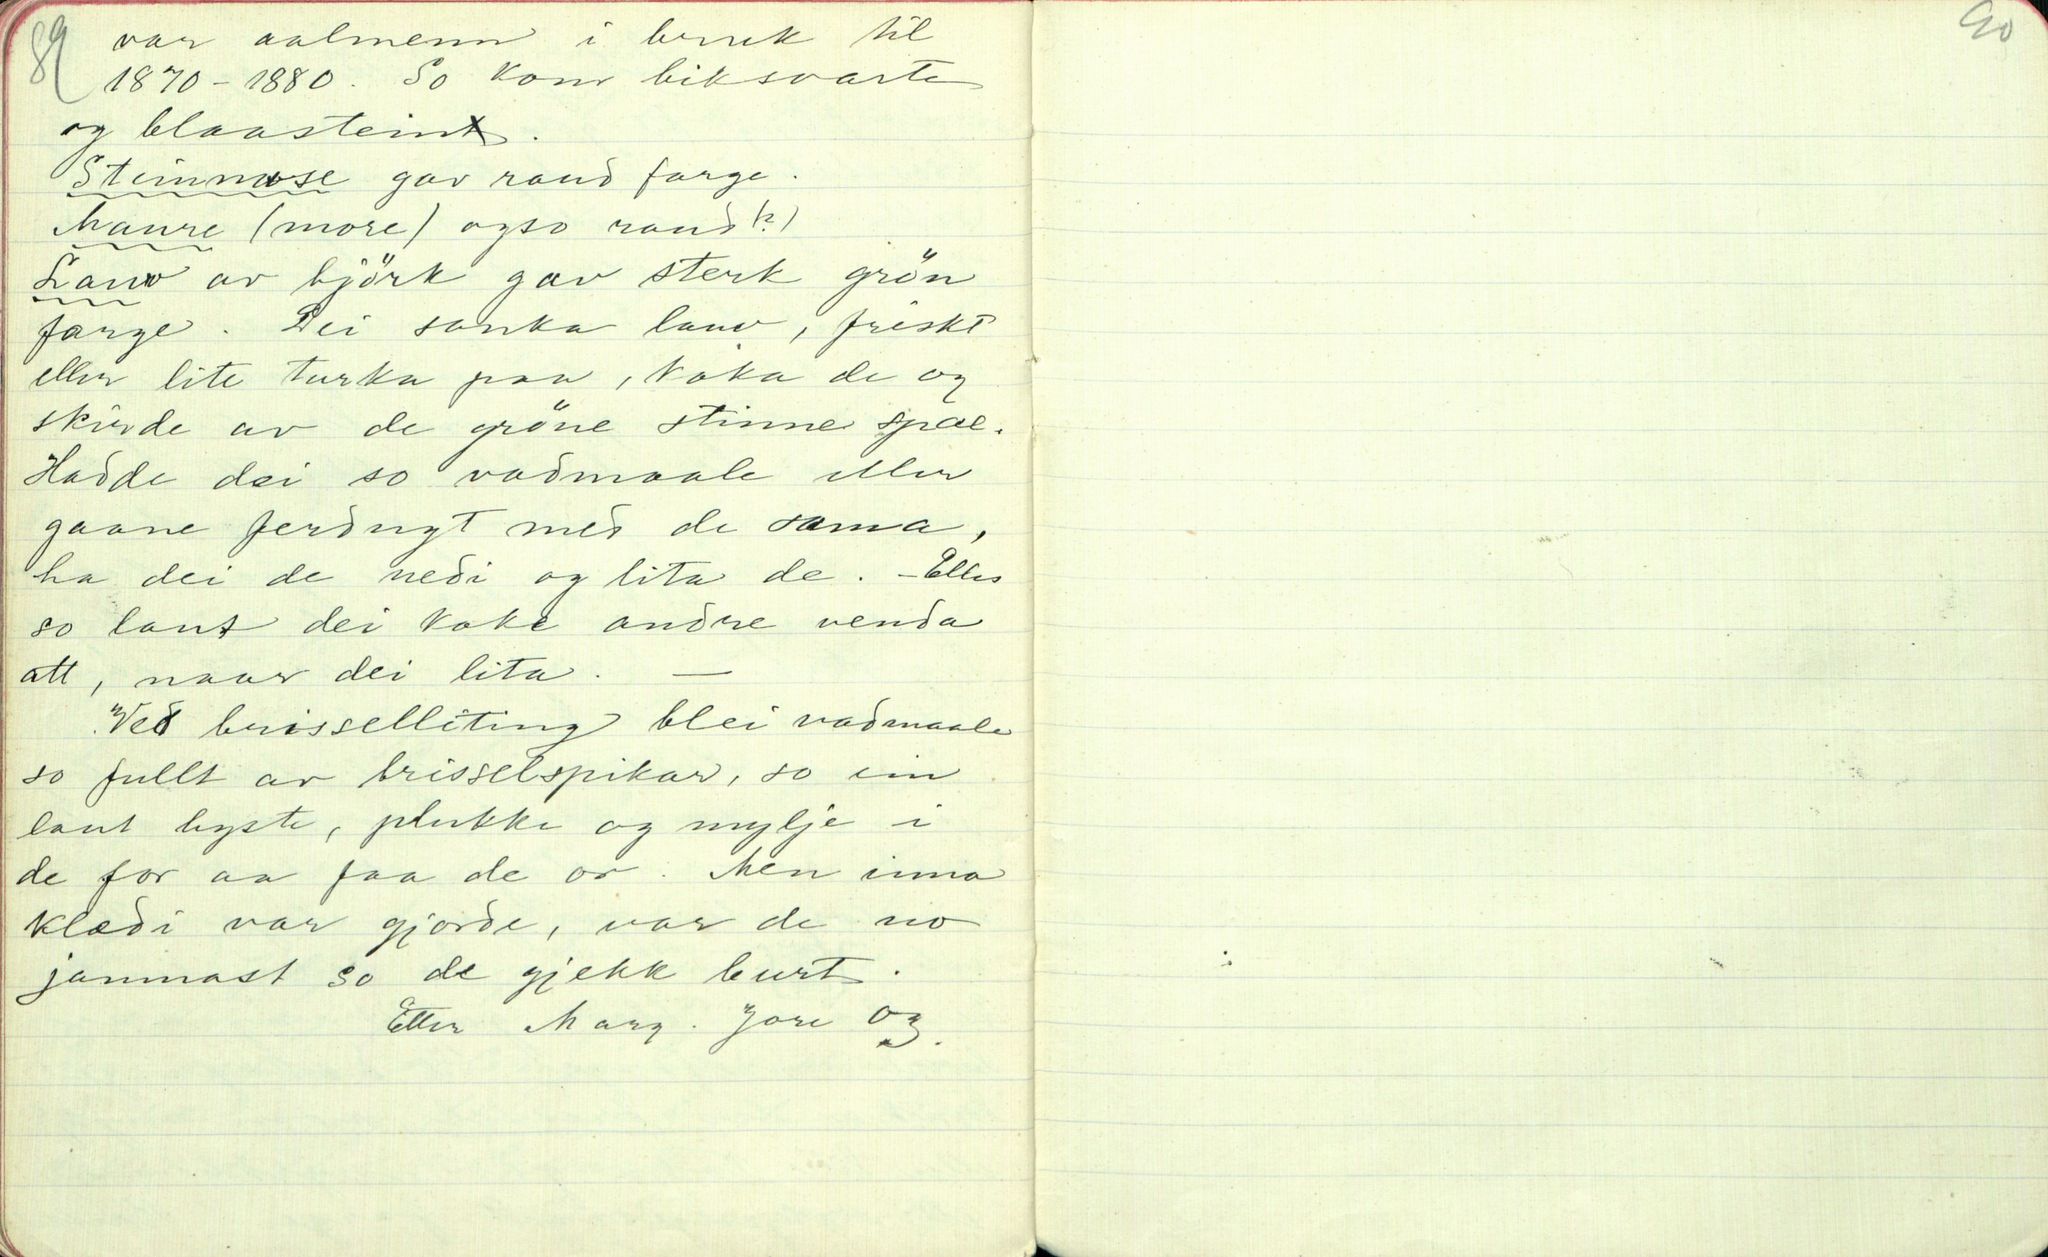 89
var aalmenn i bruk til
1870-1880. So kom biksvarte
og blaastein.
Steinmose gav raud farge.
Maure (more) ogso raud (?)
Lauv av björk gav sterk grön
farge. Dei sanka lauv, friskt
eller lite turka paa, koka de og
skirde av de gröne stinne spæ.
Hadde dei so vadmaale eller
gaane ferdugt med de sama,
ha dei de nedi og lita de. - Elles
so laut dei koke andre venda
att, naar dei lita. —
Ved brisselliting blei vadmaale
so fullt av brisselspikar, so ein
laut byste, plukke og mylje i
de for aa faa de or. Men inna
klædi var gjorde, var de no
jammast so de gjekk burt.
Etter Marg. Jore og.
90